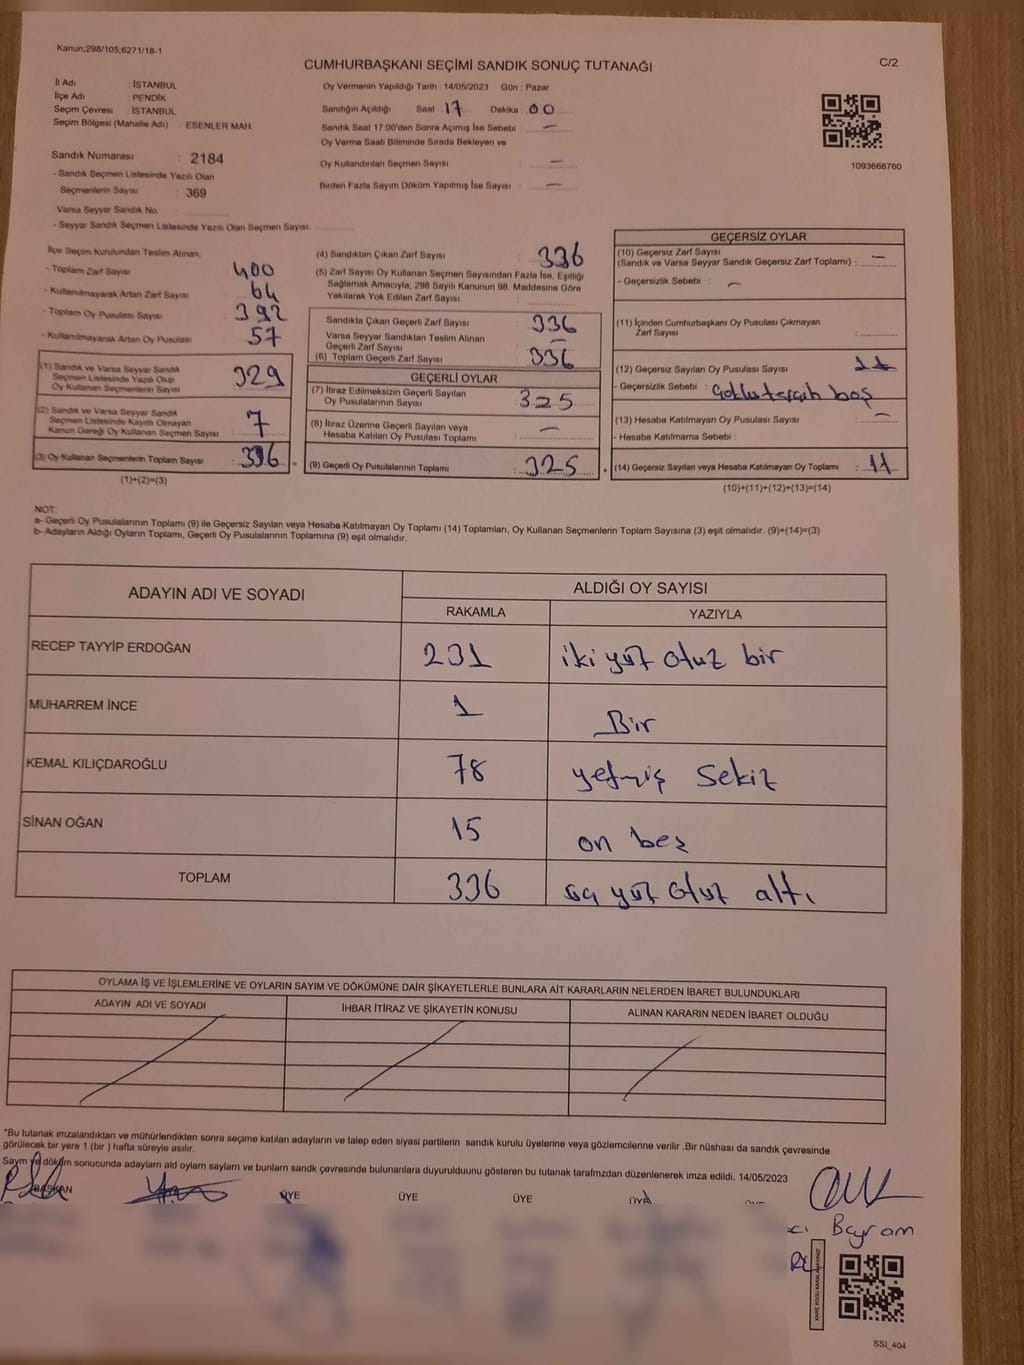 Kanun;298/105;6271/18-1
CUMHURBAŞKANI SEÇİMİ SANDIK SONUÇ TUTANAĞI
C/2
İl Adı : İSTANBUL
İlçe Adı : PENDİK
Seçim Çevresi : İSTANBUL
Seçim Bölgesi (Mahalle Adı) ESENLER MAH.
Sandık Numarası : 2184
- Sandık Seçmen Listesinde Yazılı Olan
Seçmenlerin Sayısı : 369
Varsa Seyyar Sandık No
- Seyyar Sandık Seçmen Listesinde Yazılı Olan Seçmen Sayısı
Oy Vermenin Yapıldığı Tarih : 14/05/2023 Gün : Pazar
Sandığın Açıldığı Saat : 17 Dakika : 00
Sandık Saat 17:00'den Sonra Açımış İse Sebebi : —
Oy Verme Saati Bitiminde Sırada Bekleyen ve
Oy Kullandırılan Seçmen Sayısı : —
Birden Fazla Sayım Döküm Yapılmış İse Sayısı : —
1093668760
İlçe Seçim Kurulundan Teslim Alınan;
- Toplam Zarf Sayısı : 400
- Kullanılmayarak Artan Zarf Sayısı : 64
- Toplam Oy Pusulası Sayısı : 392
- Kullanılmayarak Artan Oy Pusulası : 57
(1) Sandık ve Varsa Seyyar Sandık
Seçmen Listesinde Yazılı Olup
Oy Kullanan Seçmenlerin Sayısı : 329
(2) Sandık ve Varsa Seyyar Sandık
Seçmen Listesinde Kayıtlı Olmayan
Kanun Gereği Oy Kullanan Seçmen Sayısı : 7
(3) Oy Kullanan Seçmenlerin Toplam Sayısı : 336
(1)+(2)=(3)
(4) Sandıktan Çıkan Zarf Sayısı : 336
(5) Zarf Sayısı Oy Kullanan Seçmen Sayısından Fazla İse, Eşitliği
Sağlamak Amacıyla, 298 Sayılı Kanunun 98. Maddesine Göre
Yakılarak Yok Edilen Zarf Sayısı :
Sandıkta Çıkan Geçerli Zarf Sayısı : 336
Varsa Seyyar Sandıktan Teslim Alınan
Geçerli Zarf Sayısı :
(6) Toplam Geçerli Zarf Sayısı : 336
GEÇERLİ OYLAR
(7) İtiraz Edilmeksizin Geçerli Sayılan
Oy Pusulalarının Sayısı : 325
(8) İtiraz Üzerine Geçerli Sayılan veya
Hesaba Katılan Oy Pusulası Toplamı : —
(9) Geçerli Oy Pusulalarının Toplamı : 325
GEÇERSİZ OYLAR
(10) Geçersiz Zarf Sayısı
(Sandık ve Varsa Seyyar Sandık Geçersiz Zarf Toplamı) : —
- Geçersizlik Sebebi : —
(11) İçinden Cumhurbaşkanı Oy Pusulası Çıkmayan
Zarf Sayısı :
(12) Geçersiz Sayılan Oy Pusulası Sayısı : 11
- Geçersizlik Sebebi : boş
(13) Hesaba Katılmayan Oy Pusulası Sayısı : —
- Hesaba Katılmama Sebebi :
(14) Geçersiz Sayılan veya Hesaba Katılmayan Oy Toplamı : 11
(10)+(11)+(12)+(13)=(14)
NOT:
a- Geçerli Oy Pusulalarının Toplamı (9) ile Geçersiz Sayılan veya Hesaba Katılmayan Oy Toplamı (14) Toplamları, Oy Kullanan Seçmenlerin Toplam Sayısına (3) eşit olmalıdır. (9)+(14)=(3)
b- Adayların Aldığı Oyların Toplamı, Geçerli Oy Pusulalarının Toplamına (9) eşit olmalıdır.
ADAYIN ADI VE SOYADI
ALDIĞI OY SAYISI
RAKAMLA YAZIYLA
RECEP TAYYİP ERDOĞAN 231 iki yüz otuz bir
MUHARREM İNCE 1 Bir
KEMAL KILIÇDAROĞLU 78 yetmiş Sekiz
SİNAN OĞAN 15 on beş
TOPLAM 336 üç yüz otuz altı
OYLAMA İŞ VE İŞLEMLERİNE VE OYLARIN SAYIM VE DÖKÜMÜNE DAİR ŞİKAYETLERLE BUNLARA AİT KARARLARIN NELERDEN İBARET BULUNDUKLARI
ADAYIN ADI VE SOYADI İHBAR İTİRAZ VE ŞİKAYETİN KONUSU ALINAN KARARIN NEDEN İBARET OLDUĞU
*Bu tutanak imzalandıktan ve mühürlendikten sonra seçime katılan adayların ve talep eden siyasi partilerin sandık kurulu üyelerine veya gözlemcilerine verilir .Bir nüshası da sandık çevresinde
görülecek bir yere 1 (bir ) hafta süreyle asılır.
Sayım ve döküm sonucunda adayların ald oyların sayların ve bunların sandk çevresinde bulunanlara duyurulduunu gösteren bu tutanak tarafmzdan düzenlenerek imza edildi. 14/05/2023
BAŞKAN ÜYE ÜYE ÜYE
Bayram
SSI_404